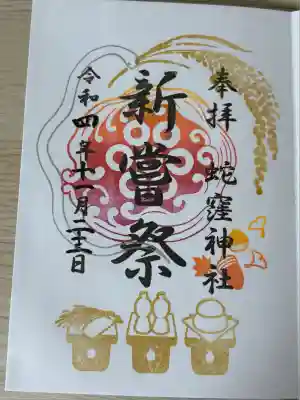 奉拝 蛇窪神社
新嘗祭
令和四年十一月二十三日